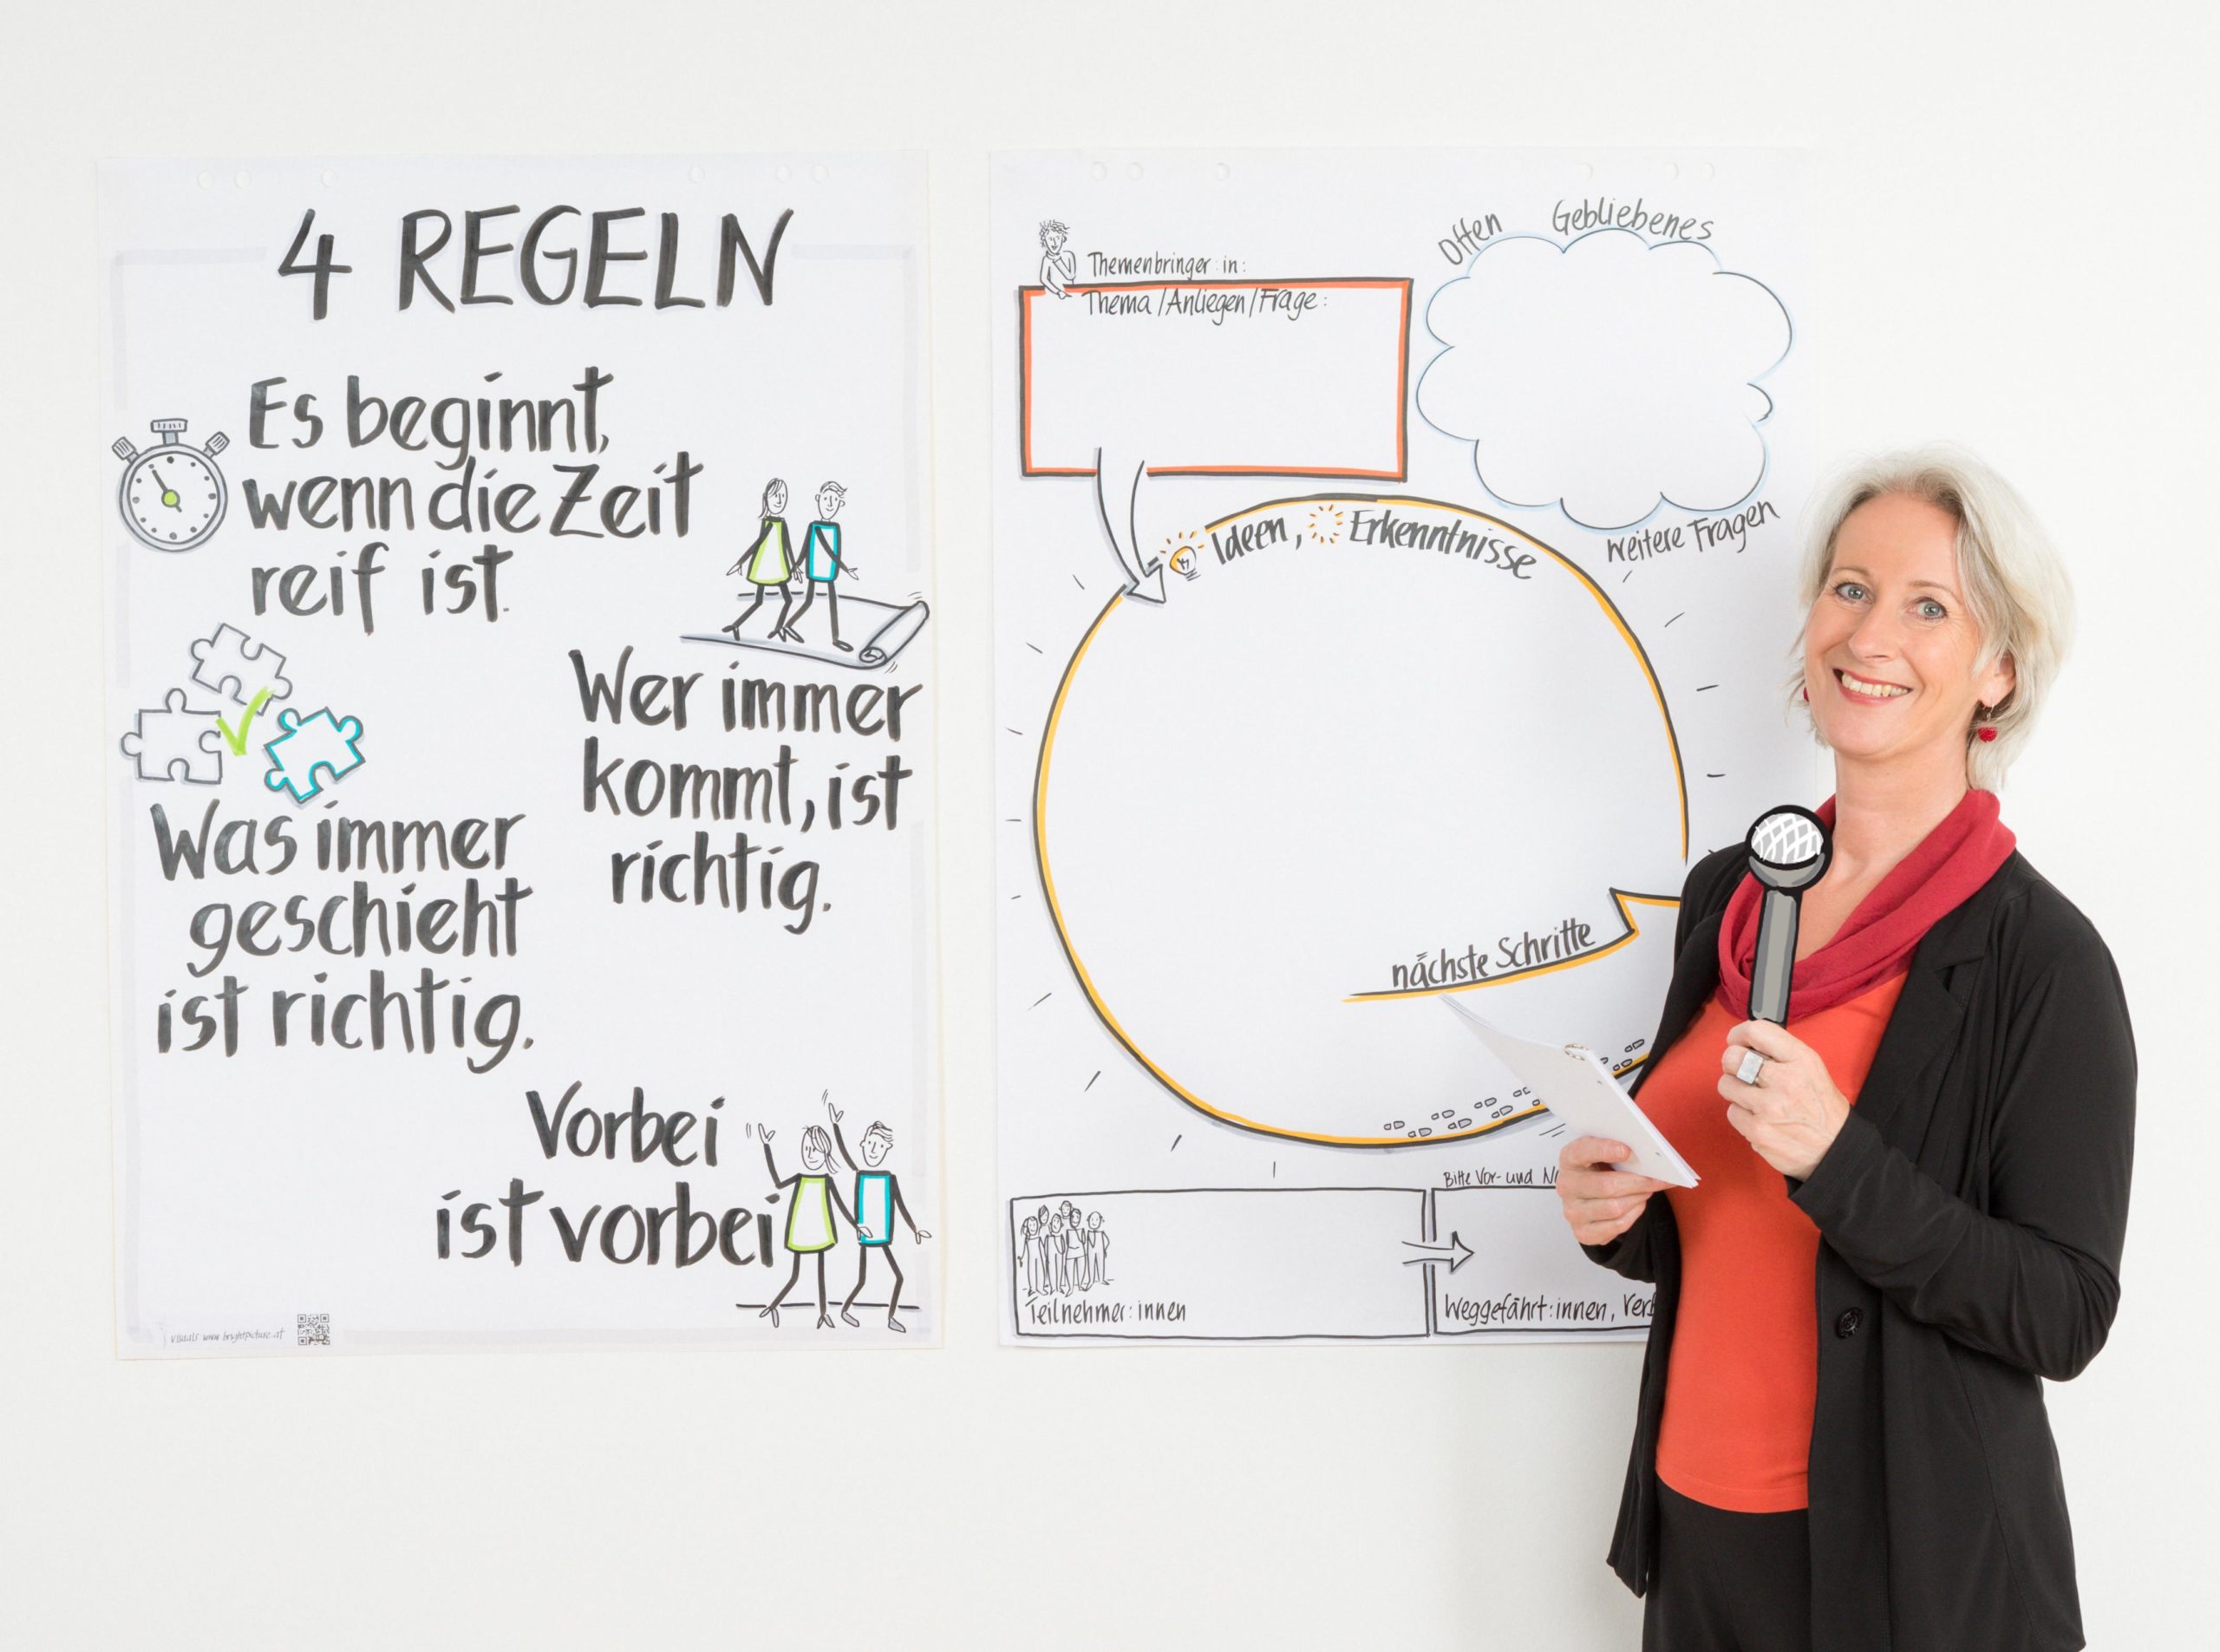 4 REGELN
Es beginnt,
wenn die Zeit
reif ist.
Wer immer
kommt, ist
richtig.
Was immer
geschieht
ist richtig.
Vorbei
ist vorbei
visuals www.brightpicture.at
Themenbringer:in:
Thema/Anliegen/Frage:
Offen Gebliebenes
weitere Fragen
Ideen, Erkenntnisse
nächste Schritte
Bitte Vor- und
Teilnehmer:innen
Weggefährt:innen,